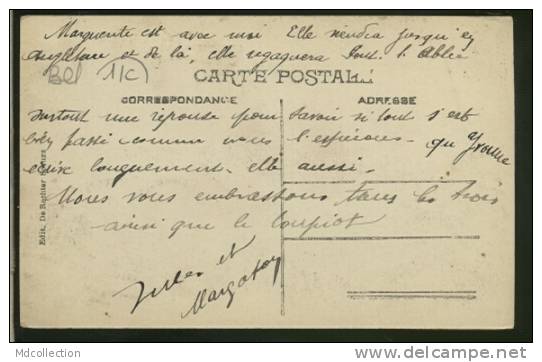 Marguerite est avec moi Elle viendra jusqu'en
Angleterre et de là, elle regagnera
Bel 11C
CARTE POSTALE
CORRESPONDANCE ADRESSE
surtout une réponse pour savoir si tout s'est
bien passé comme nous l'espérons. qu'Yvonne
écrive longuement elle aussi.
Nous vous embrassons tous les trois
ainsi que le loupiot
Jules et
Margot
Edit. De
Mdcollection
http://www.delcampe.net